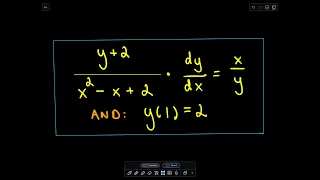 (y+2)/(x² - x + 2) · dy/dx = x/y
AND: y(1) = 2